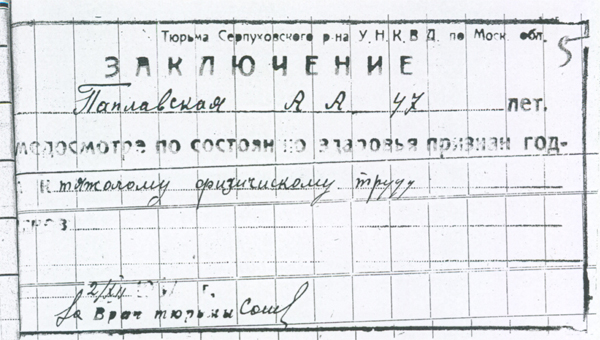 5
Тюрьма Серпуховского р-на У.Н.К.В.Д. по Моск. обл.
ЗАКЛЮЧЕНИЕ
Паплавская А А 47 лет.
медосмотре по состоян по здоровья признан год-
к тяжолому физическому труду
2/XII г.
За Врач тюрьмы